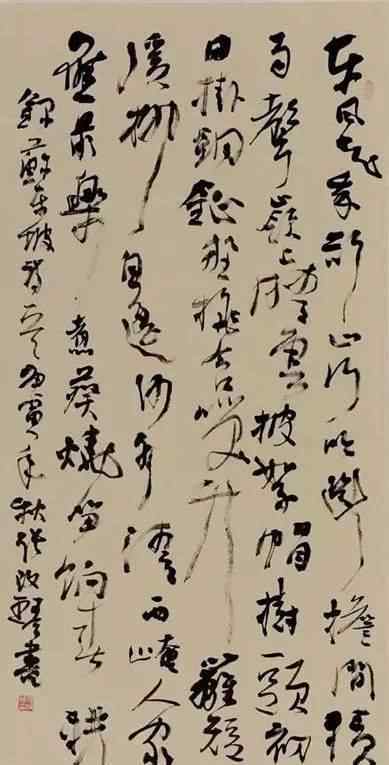 東風知我欲山行吹斷檐間積
雨聲嶺上晴雲披絮帽樹頭初
日掛銅鉦野桃含笑竹籬短
溪柳自搖沙水清西崦人家
應最樂煮葵燒笋餉春耕
錄蘇東坡詩一首寅年秋張改琴書